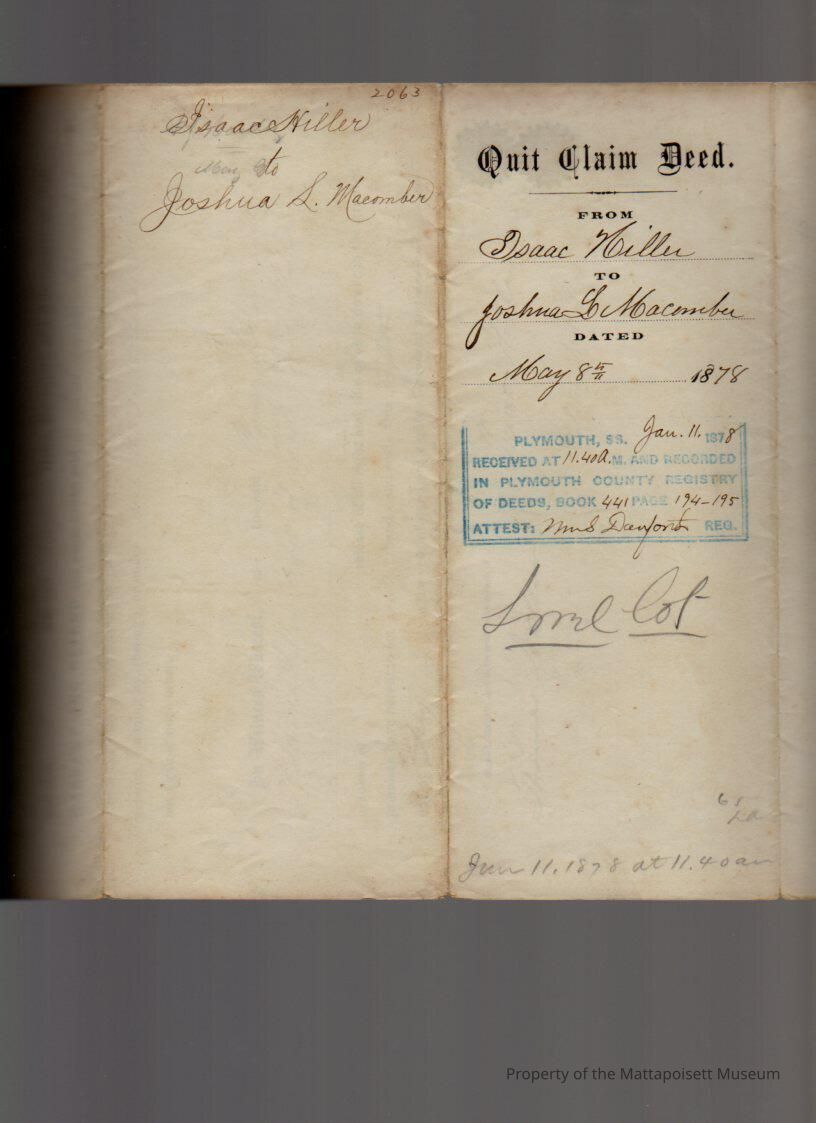 2063
Isaac Hiller
May
to
Joshua L. Macomber
Quit Claim Deed.
FROM
Isaac Hiller
TO
Joshua L Macomber
DATED
May 8th 1878
PLYMOUTH, SS. Jan. 11. 1878
RECEIVED AT 11.40 A.M. AND RECORDED
IN PLYMOUTH COUNTY REGISTRY
OF DEEDS, BOOK 441 PAGE 194-195
ATTEST: Wm S Danforth REG.
Lot
65
Jun 11. 1878 at 11.40 am
Property of the Mattapoisett Museum